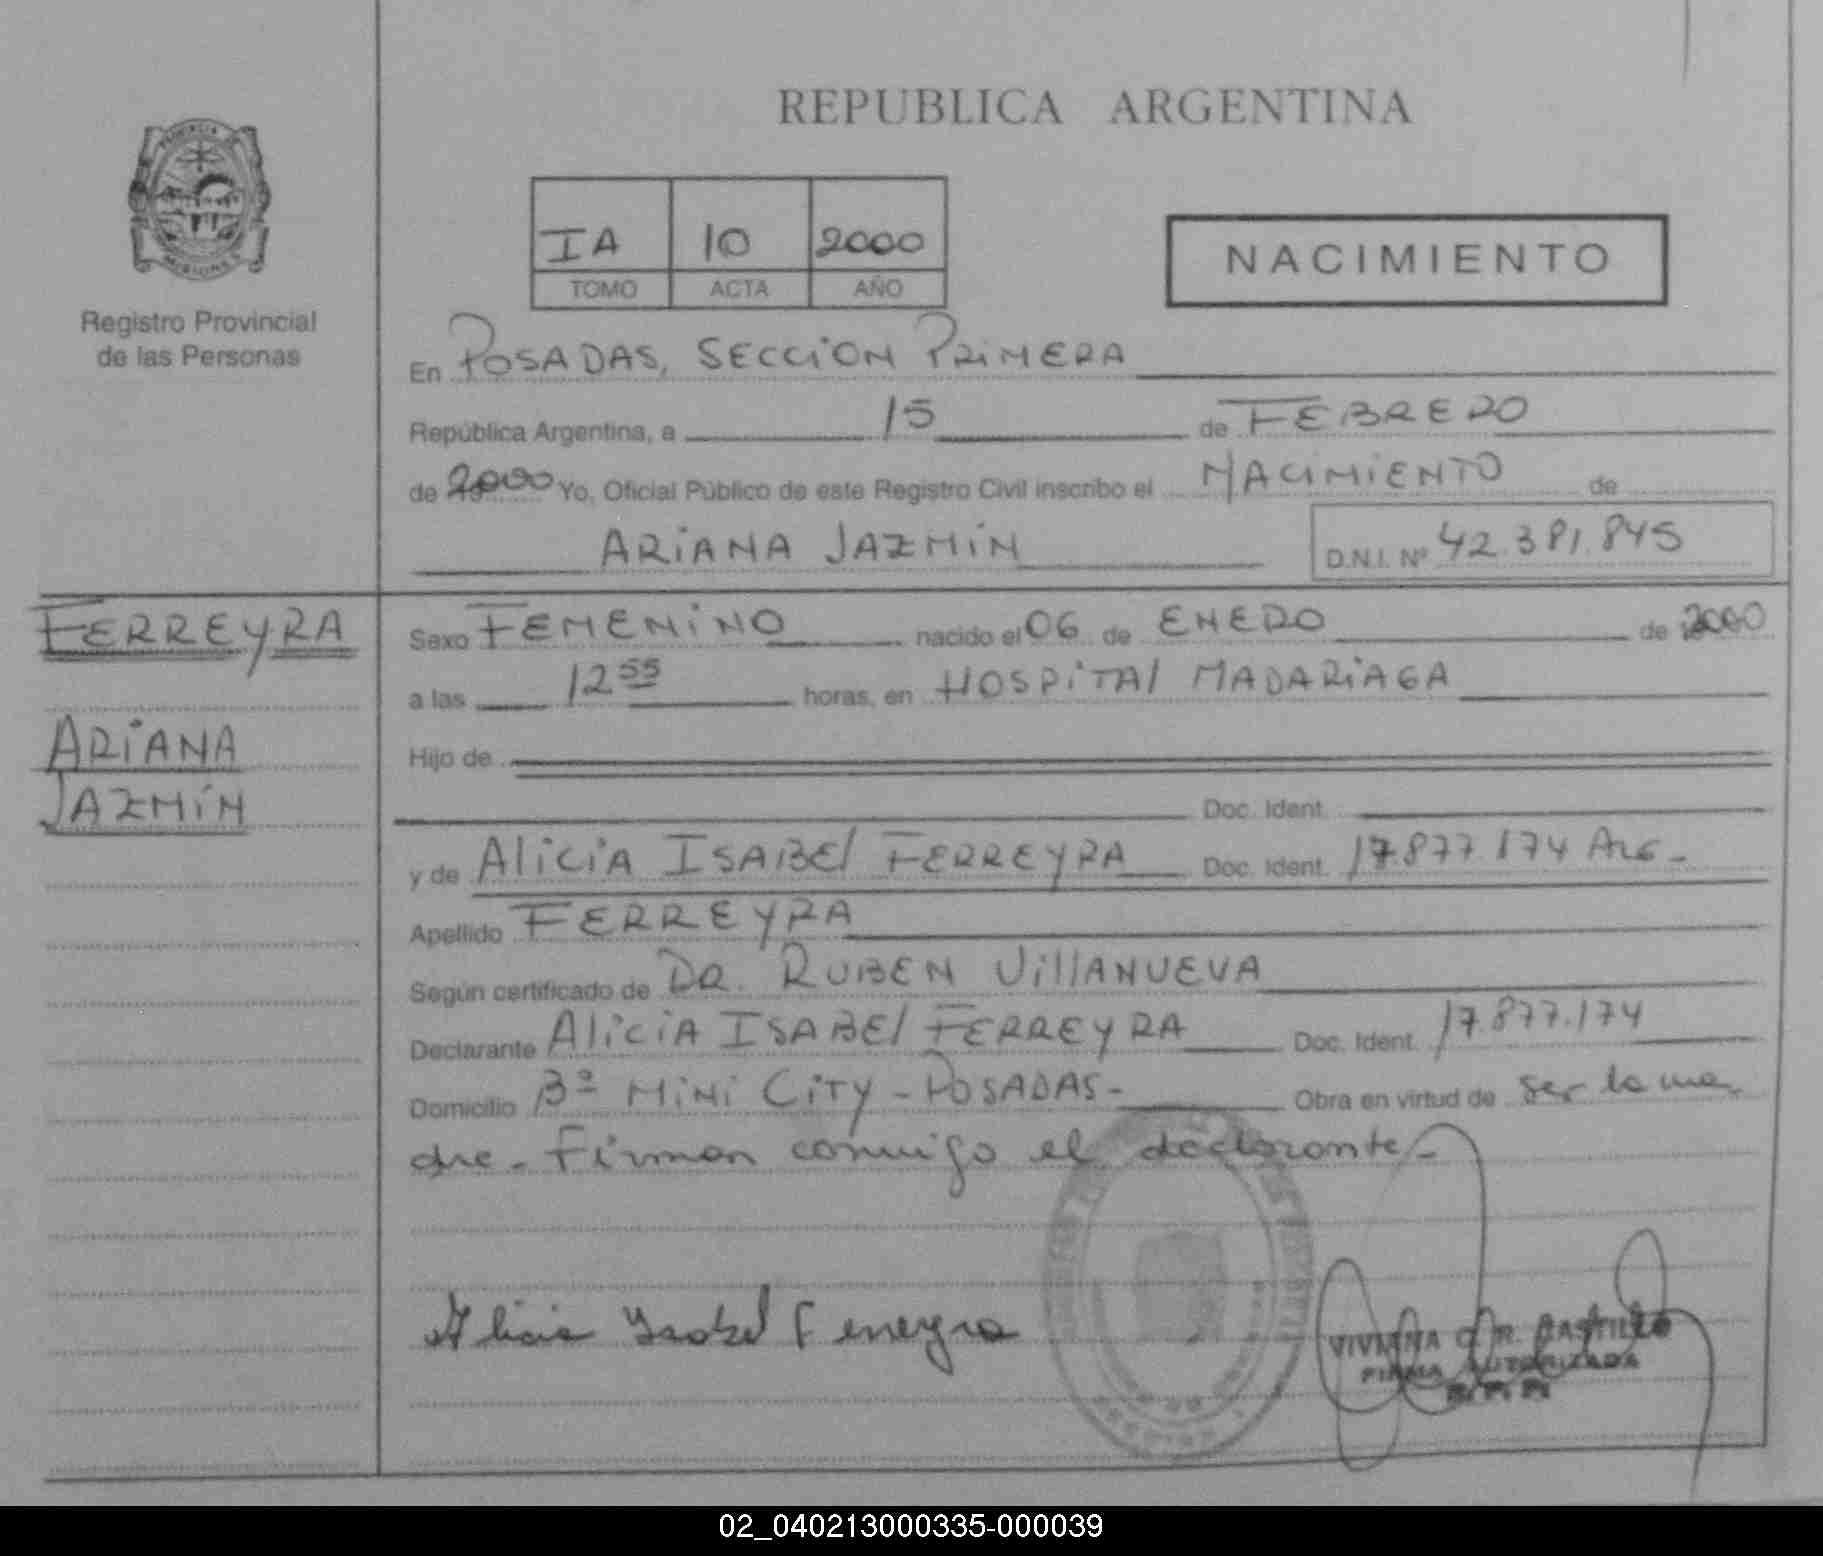 REPUBLICA ARGENTINA
MISIONES
Registro Provincial
de las Personas
IA 10 2000
TOMO ACTA AÑO
NACIMIENTO
En POSADAS, SECCION PRIMERA
República Argentina, a 15 de FEBRERO
de 2000 Yo, Oficial Público de este Registro Civil inscribo el NACIMIENTO de
ARIANA JAZMIN D.N.I. Nº 42.381.845
FERREYRA
ARIANA
JAZMIN
Sexo FEMENINO nacido el 06 de ENERO de 2000
a las 12 55 horas, en HOSPITAL MADARIAGA
Hijo de
Doc. Ident.
y de ALICIA ISABEL FERREYRA Doc. Ident. 17.877.174 ARG-
Apellido FERREYRA
Según certificado de DR. RUBEN VILLANUEVA
Declarante ALICIA ISABEL FERREYRA Doc. Ident. 17.877.174
Domicilio Bº MINI CITY - POSADAS- Obra en virtud de ser la ma
dre. Firman conmigo el declarante-
Alicia Isabel Ferreyra
VIVIANA C. R. CASTILLO
FIRMA AUTORIZADA
02_040213000335-000039